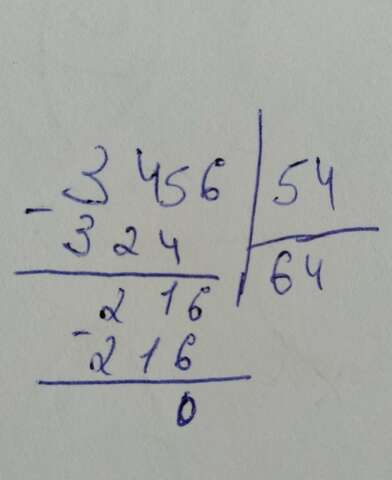 - 3 456 | 54
3 24 | 64
216
- 216
0